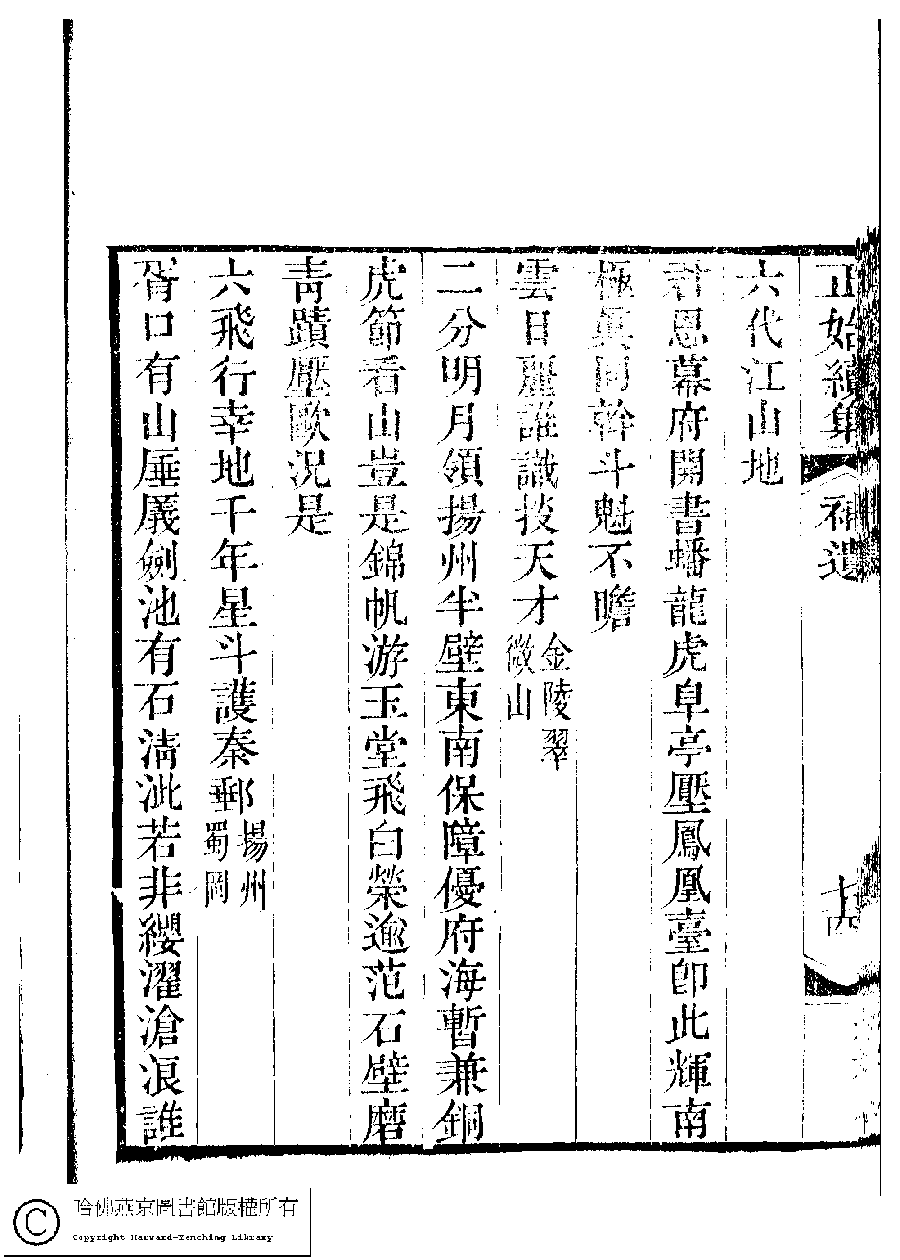 正始續集 補遺 十四
六代江山地
君恩幕府開書蟠龍虎阜亭壓鳳凰臺卽此輝南
極眞同幹斗魁不瞻
雲日麗誰識技天才金陵翠微山
二分明月領揚州半壁東南保障優府海暫兼銅
虎節看山豈是錦帆游玉堂飛白榮逾范石壁磨
靑蹟壓歐況是
六飛行幸地千年星斗護秦郵揚州蜀岡
胥口有山厜㕒劍池有石淸泚若非纓濯滄浪誰
哈佛燕京圖書館版權所有
Copyright Harvard-Yenching Library